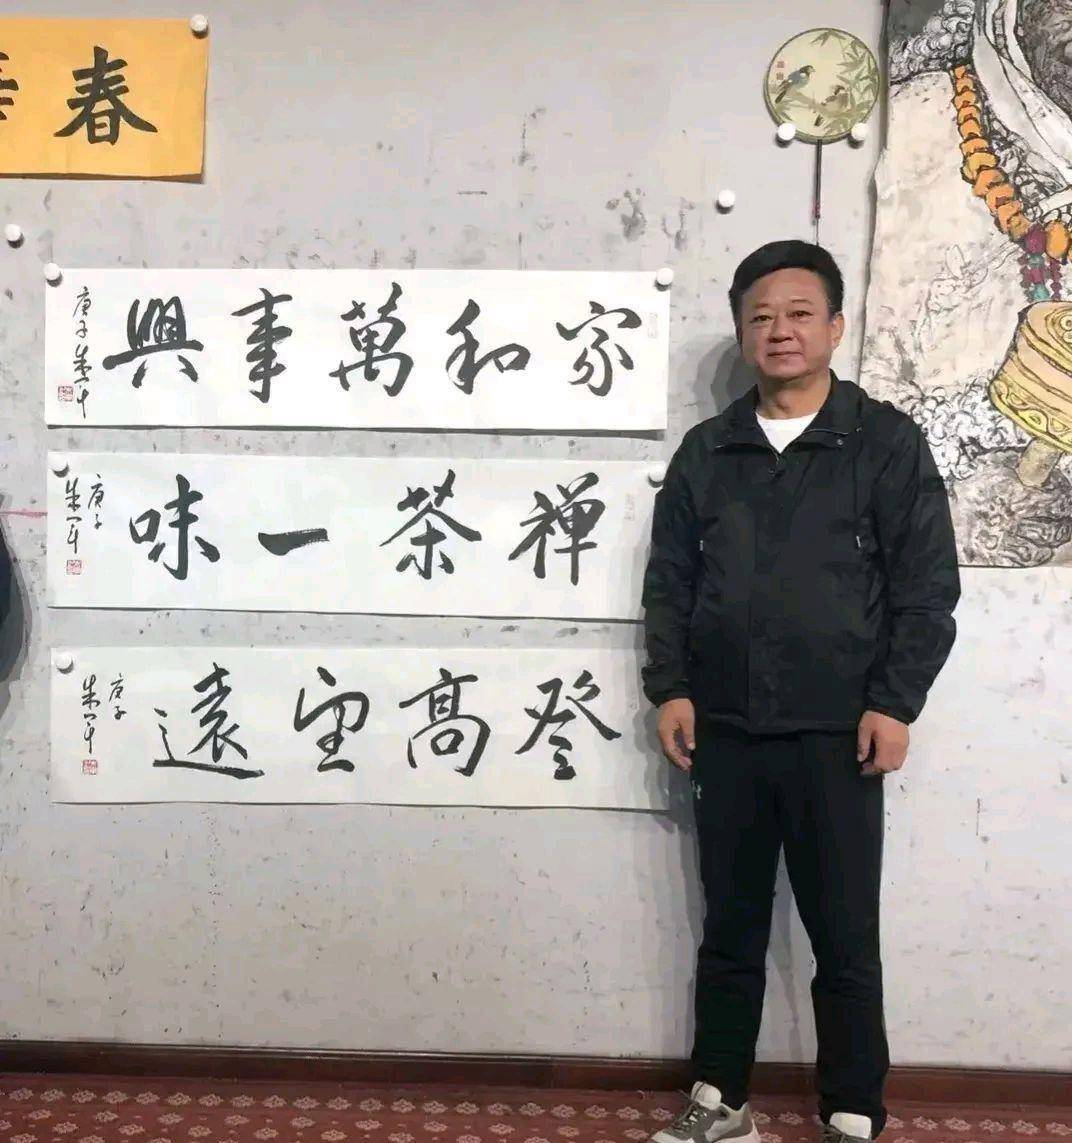 春
家和萬事興
庚子朱军
禅茶一味
庚子
朱军
登髙望遠
庚子
朱军